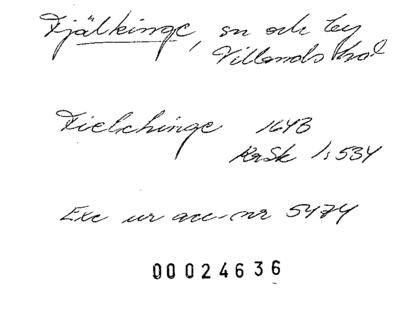 Fjälkinge, sn och by
Villands hd
Fielchinge 1643
RäSk 1:534
Exc ur acc-nr 5474
00024636